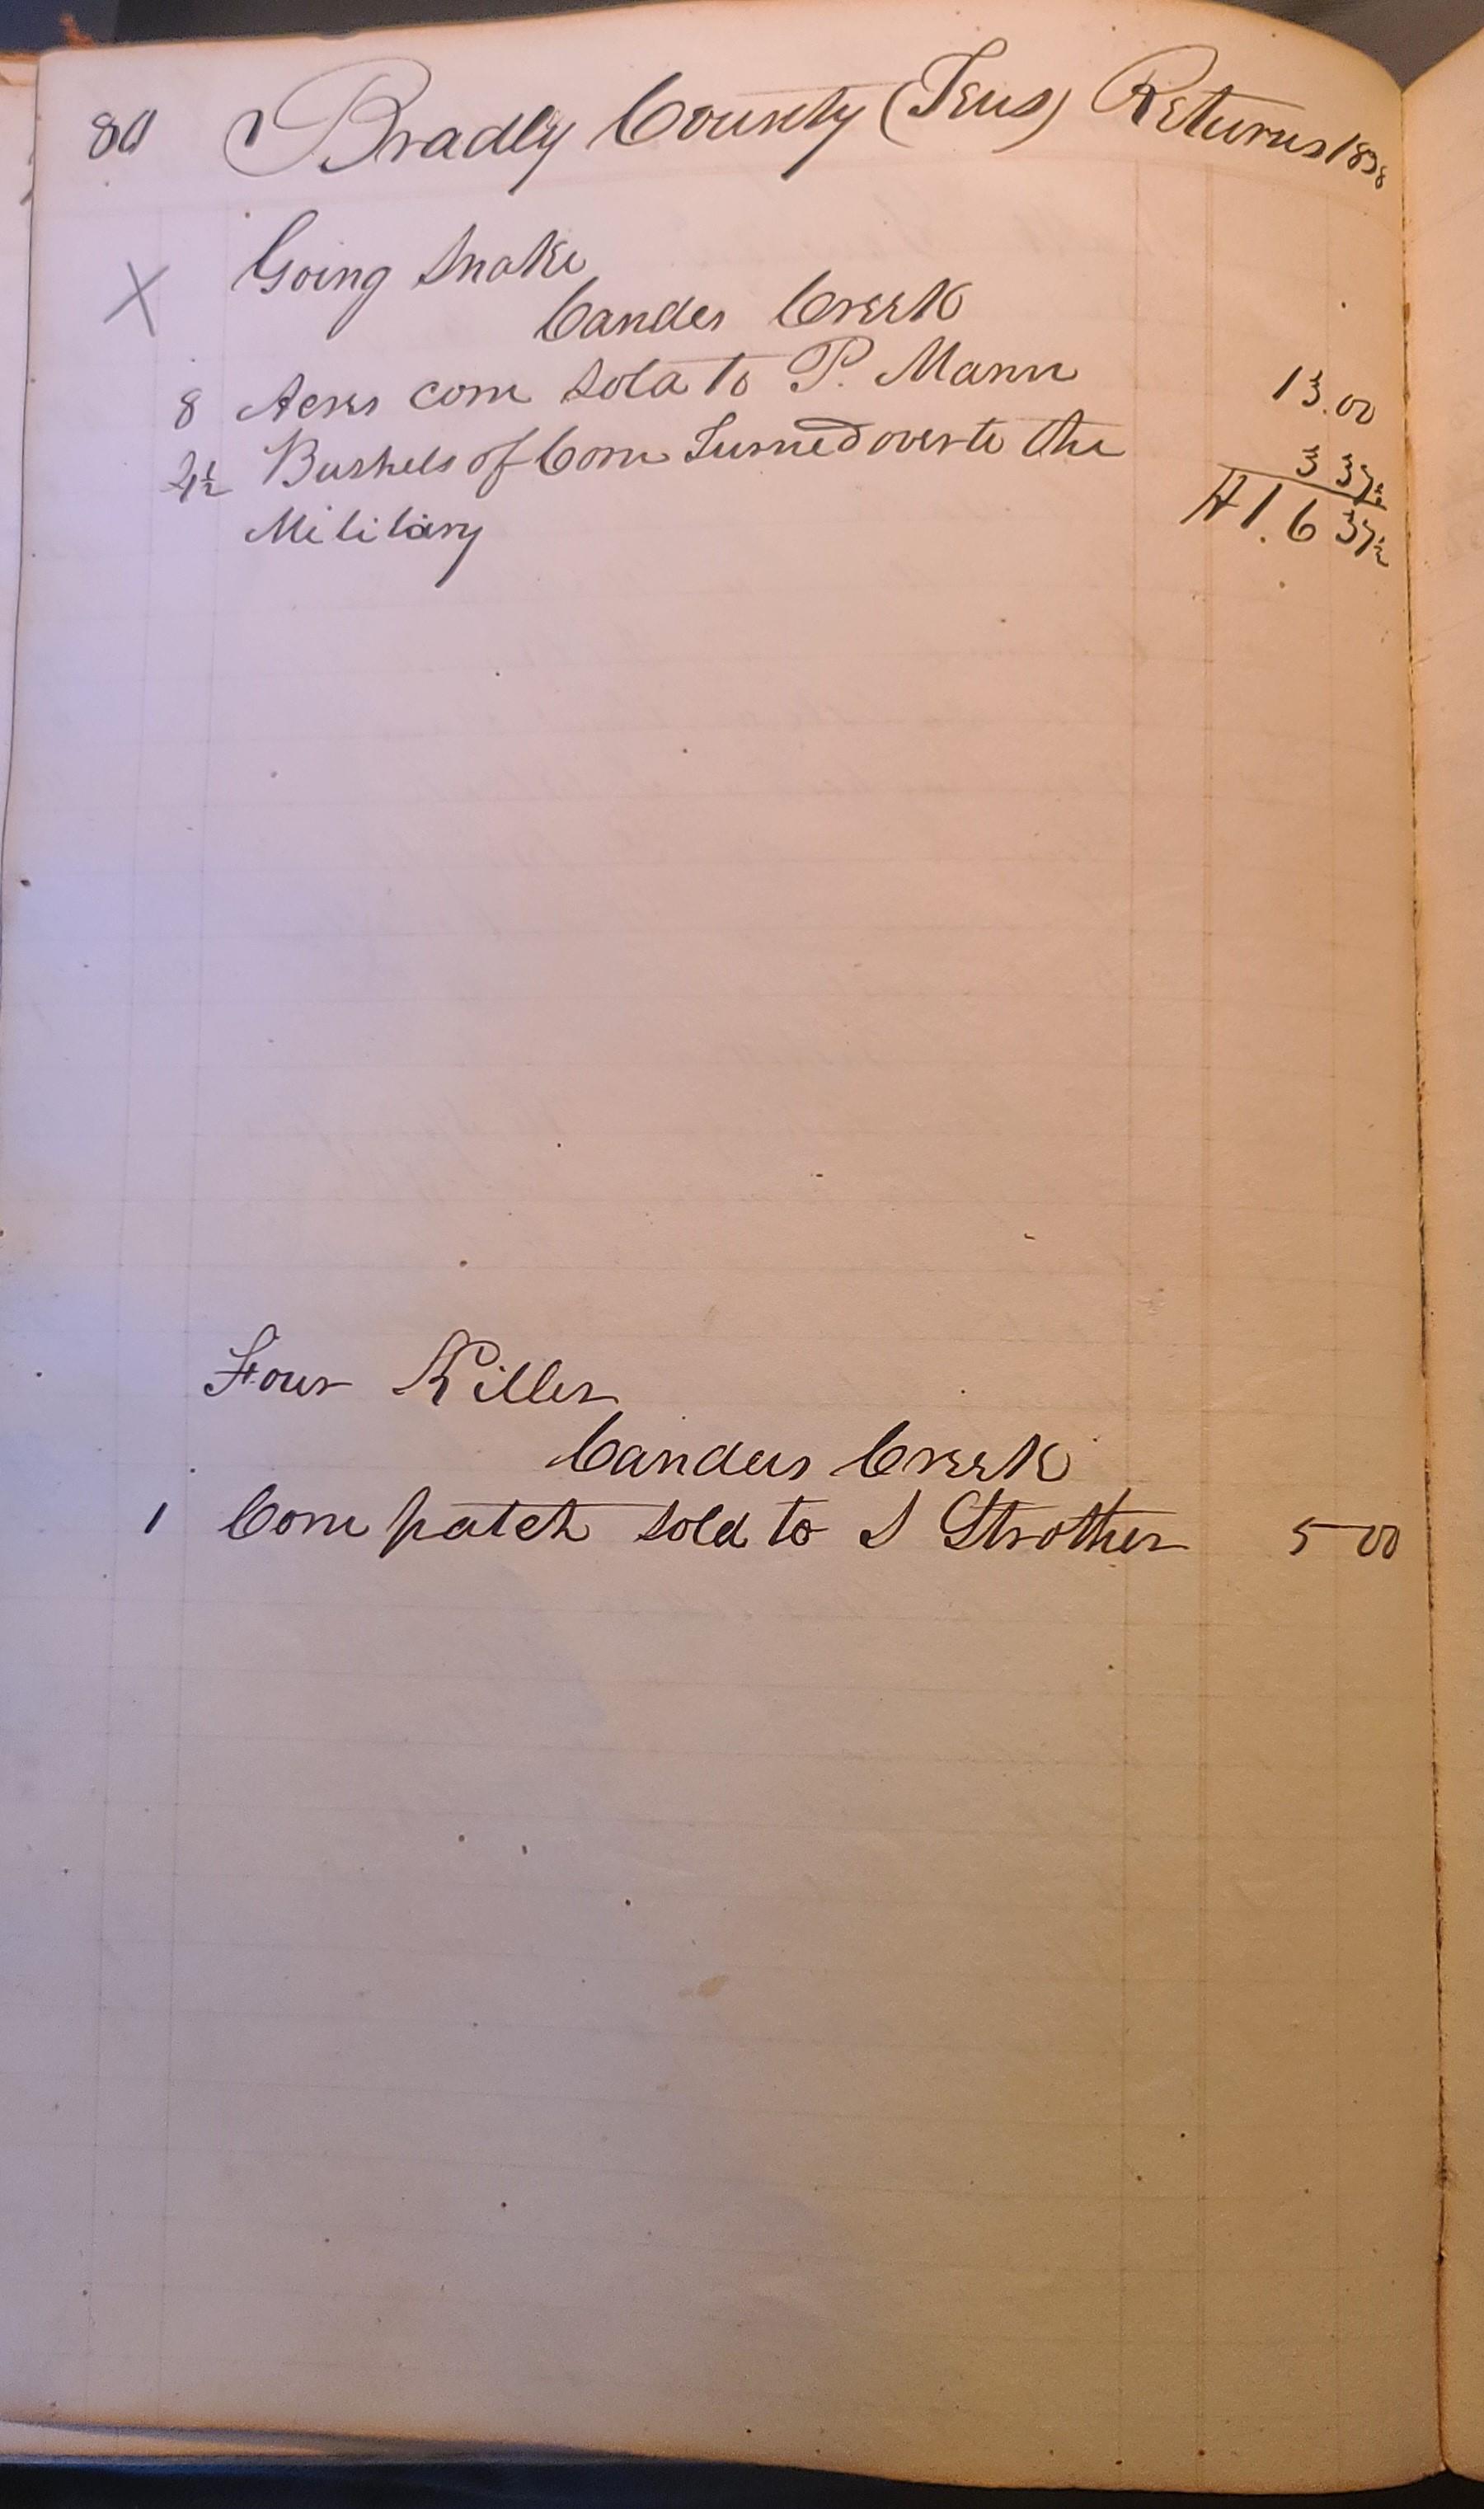 80 Bradly County (Tens) Returns 1838
X Going Snake
Candes Creek
8 Acres corn sold to P. Mann 13.00
4½ Bushels of Corn Turned over to the 3 37½
Military 16 37½
Four Killer
Candeis Creek
1 Corn patch sold to S Strother 5 00